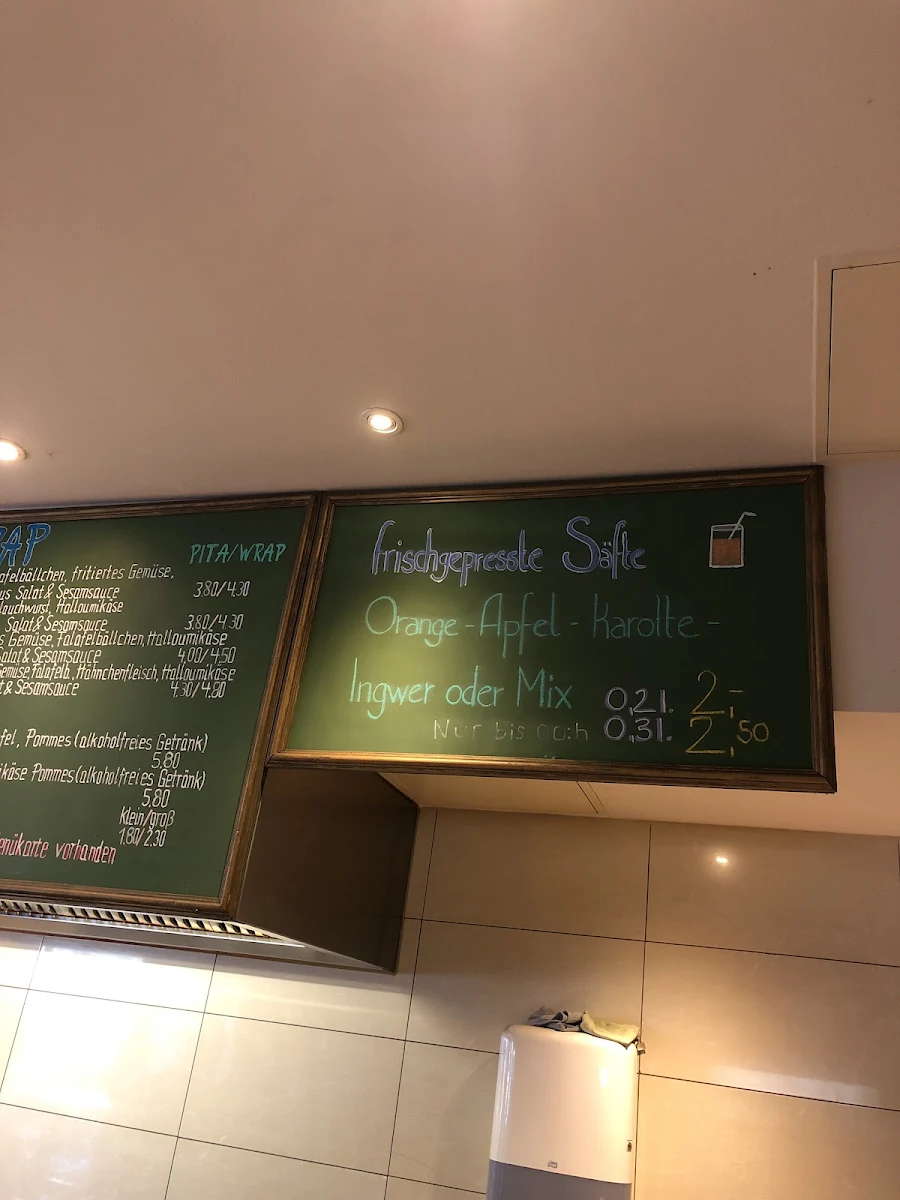 AP
PITA/WRAP
afelbällchen, fritiertes Gemüse,
us Salat & Sesamsauce 3.80/4.30
lauchwurst, Halloumikäse
Salat & Sesamsauce 3.80/4.30
s Gemüse, Falafelbällchen, Halloumikäse
Salat & Sesamsauce 4,00/4,50
Gemüse, Falafelb., Hähnchenfleisch, Halloumikäse
t & Sesamsauce 4.30/4.80
fel, Pommes (alkoholfreies Getränk)
5,80
ikäse Pommes (alkoholfreies Getränk)
5,80
Klein/groß
1,80/2,30
enükarte vorhanden
frischgepresste Säfte
Orange - Apfel - Karotte -
Ingwer oder Mix 0,2l. 2,-
Nur bis 00:h 0,3l. 2,50